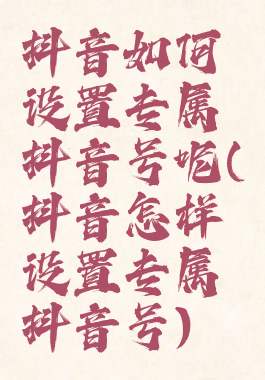 抖音如何
设置专属
抖音号呢(
抖音怎样
设置专属
抖音号)